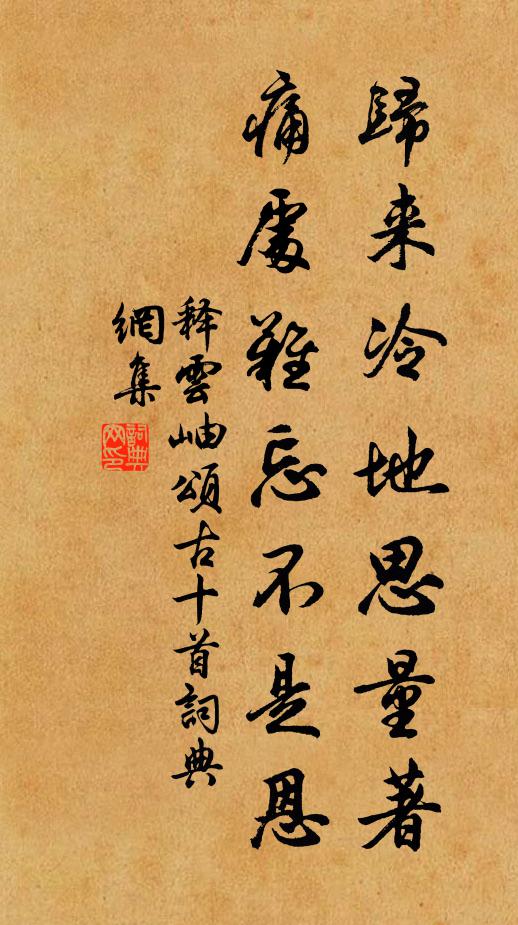 歸来冷地思量著
痛處難忘不是恩
释雲岫頌古十首詞典
網集
詞典網印